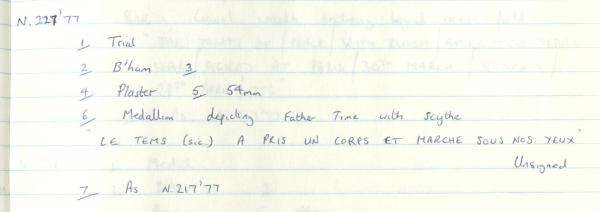 N.227'77
1 Trial
2 B'ham 3
4 Plaster 5 54mm
6 Medallion depicting Father Time with Scythe
"LE TEMS (sic.) A PRIS UN CORPS ET MARCHE SOUS NOS YEUX"
Unsigned
7 As N.217'77